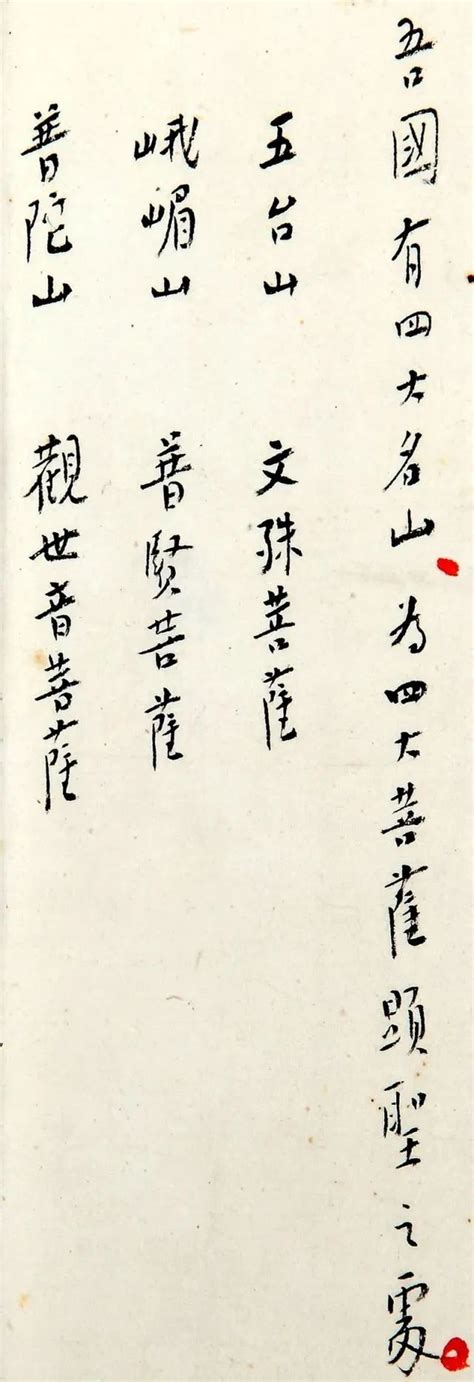 吾國有四大名山、為四大菩薩顯聖之處。
五台山 文殊菩薩
峨嵋山 普賢菩薩
普陀山 觀世音菩薩